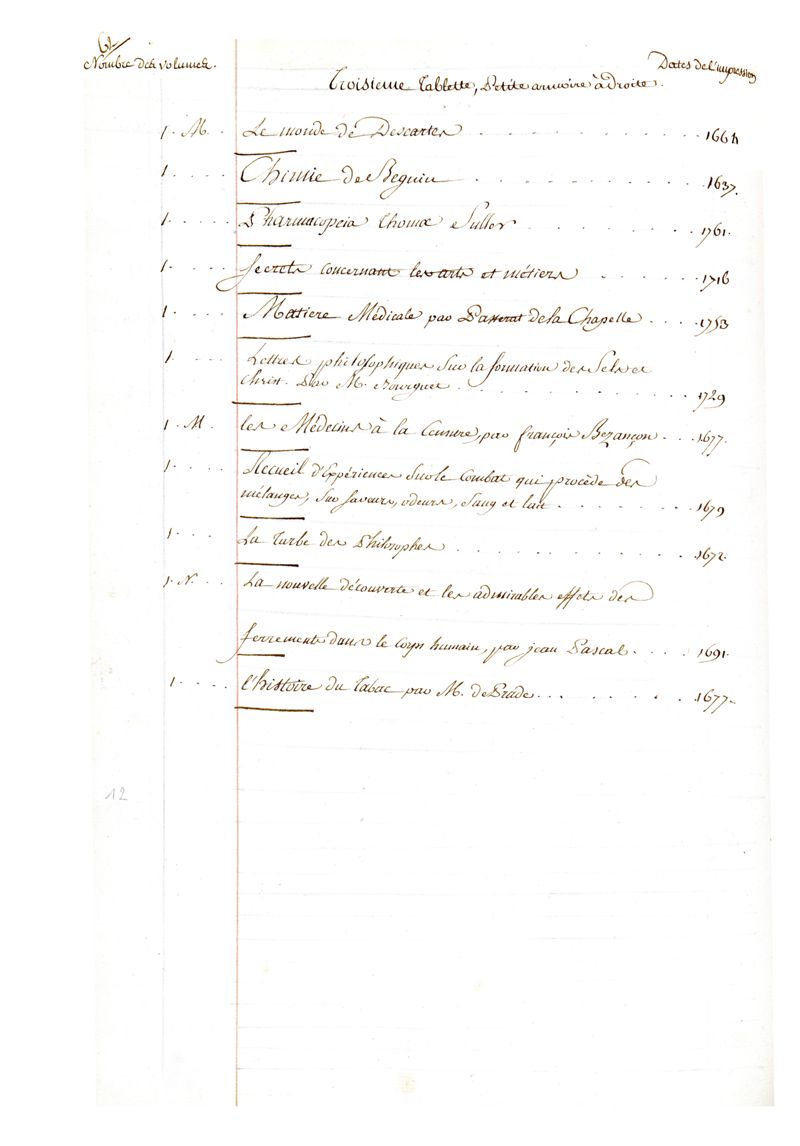 62
Nombre des volumes. Dates de l'impression
Troisieme Tablette, Petite armoire à droite.
1. M. Le monde de Descartes . . . . . . . . . . . 1664
1. . . . . Chimie de Beguin . . . . . . . . . . . 1637.
1. . . . . Pharmacopœia Thomæ Fuller . . . . . . . . 1761.
1. . . . . Secrets concernant les arts et métiers . . . . . . 1716
1. . . . . Matiere Médicale par Passerat de la Chapelle . . . . 1753
1. . . . . Lettres philosophiques sur la formation des Sels et
Christ. Par M. Bourguet . . . . . . . . . . . 1729
1. M. les Médecins à la Censure, par françois Bezançon . . . 1677.
1. . . . . Recueil d'Expériences sur le Combat qui procède des
mélanges, sur saveurs, odeurs, Sang et lait . . . . . . . 1679
1. . . . . La Turbe des Philosophes . . . . . . . . . . . 1672.
1. N. . . La nouvelle découverte et les admirables effets des
ferrements dans le corps humain, par jean Pascal . . . . 1691.
1. . . . . l'histoire du Tabac par M. de Prade . . . . . . . . 1677.
12